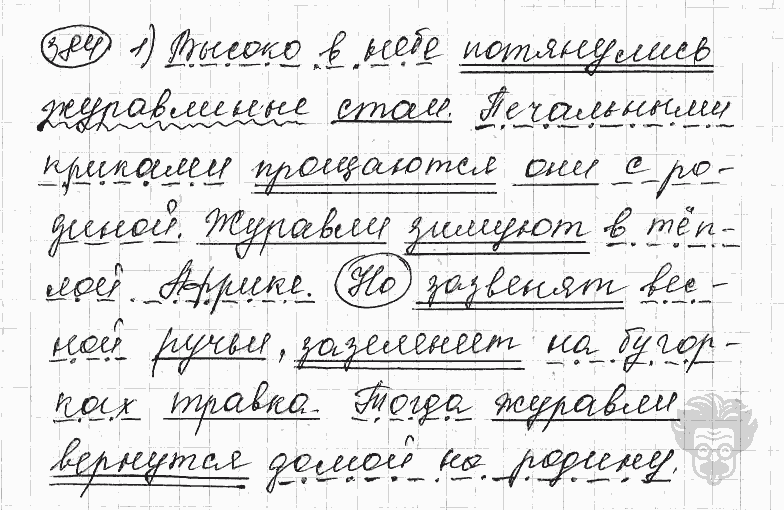 384 1) Высоко в небе потянулись
журавлиные стаи. Печальными
криками прощаются они с ро-
диной. Журавли зимуют в тёп-
лой Африке. Но зазвенят вес-
ной ручьи, зазеленеет на бугор-
ках травка. Тогда журавли
вернутся домой на родину.